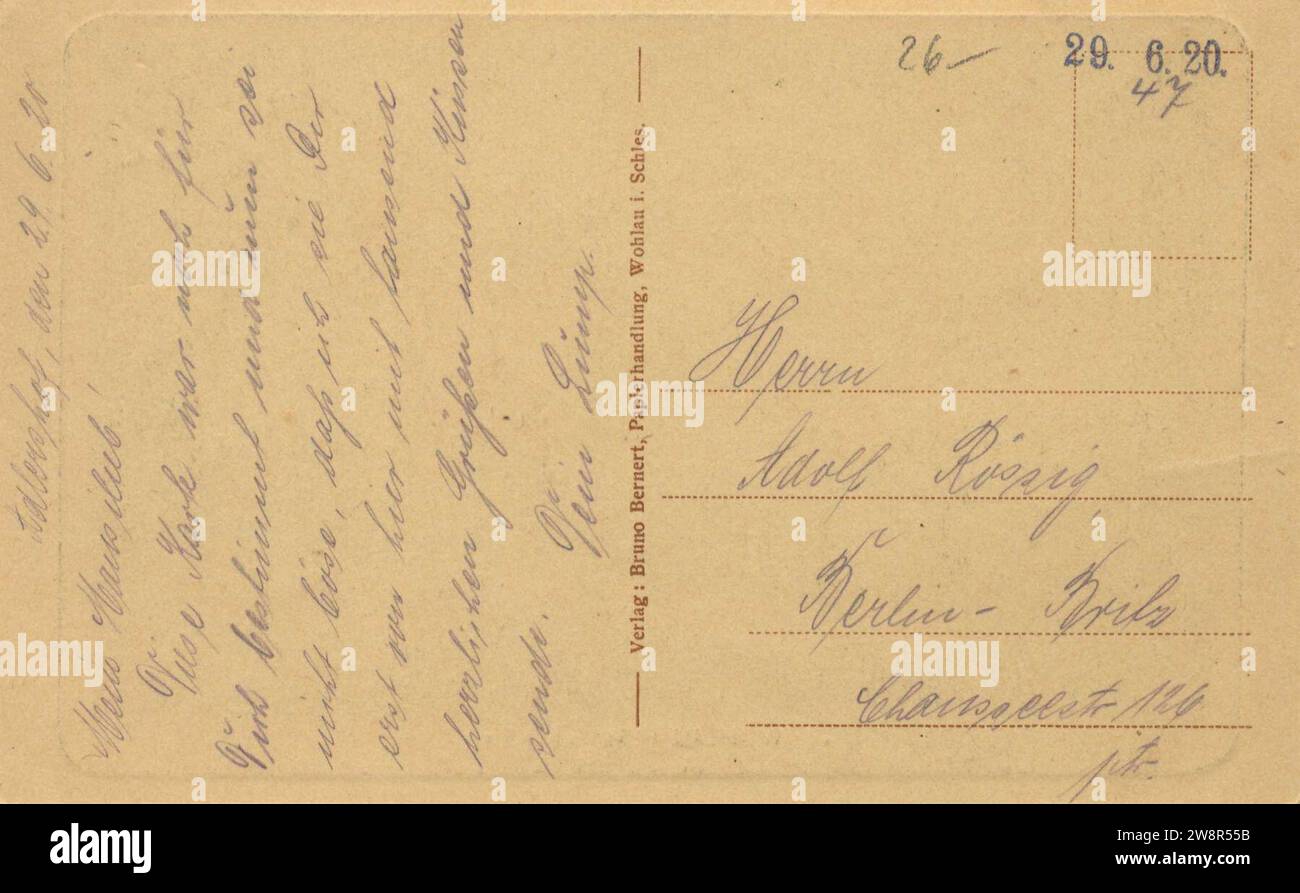 Adlershof, den 29.6.20
Mein Hanslieb.
Diese Karte war noch für
Dich bestimmt und nun sei
nicht böse, daß ich sie Dir
erst von hier mit tausend
herzlichen Grüßen und Küssen
sende.
Dein
Verlag: Bruno Bernert, Papierhandlung, Wohlau i. Schles.
26-
29. 6. 20.
47
Herrn
Adolf Röszig
Berlin-Britz
Chausseestr 126
ptr.
alamy
Image ID: 2W8R55B
www.alamy.com